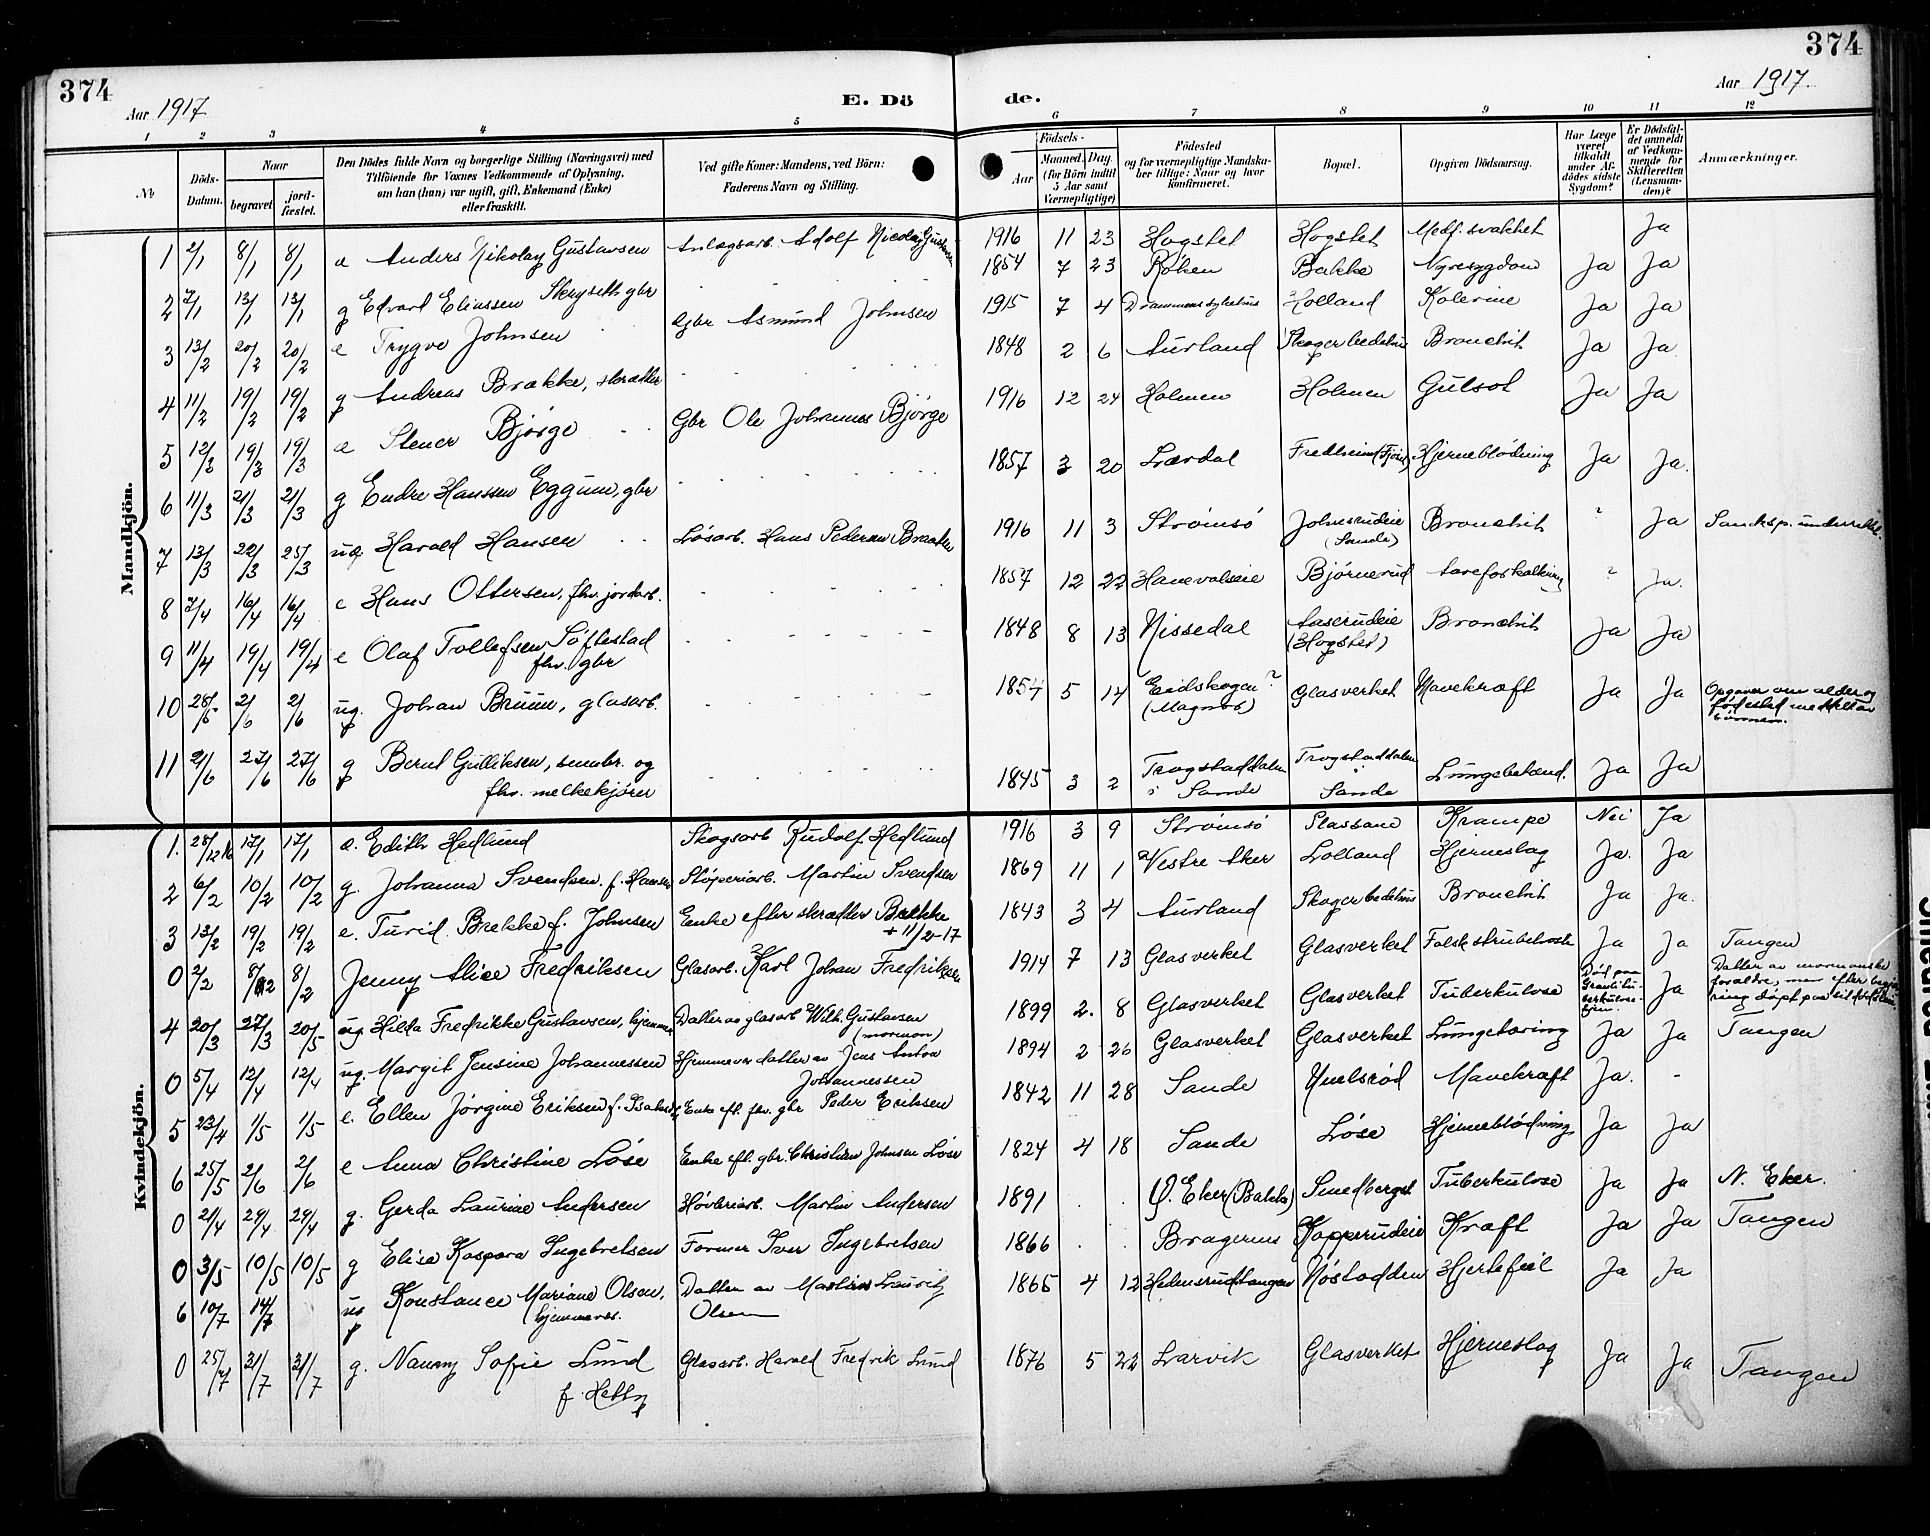 374
374
Aar 1917
E. Dö
de.
Aar 1917.
1 2 3 4 5 6 7 8 9 10 11 12
№
Döds-Datum.
Naar
begravet
jord-fæstet.
Den Dödes fulde Navn og borgerlige Stilling (Næringsvei) med
Tilföiende for Voxnes Vedkommende af Oplysning,
om han (hun) var ugift, gift, Enkemand (Enke)
eller fraskilt.
Ved gifte Koner: Mandens, ved Börn:
Faderens Navn og Stilling.
Födsels-
Aar
Maaned. Dag.
(for Börn indtil 5 Aar samt Værnepligtige)
Födested
og for værnepligtige Mandska-
ber tillige: Naar og hvor
konfirmeret.
Bopæl.
Opgiven Dödsaarsag.
Har Læge været tilkaldt under Afdödes sidste Sygdom?
Er Dödsfaldet anmeldt af Vedkommende for Skifteretten (Lensmanden)?
Anmærkninger.
Mandkjön.
1 2/1 8/1 8/1 e Anders Nikolay Gustavsen Anlægsarb. Adolf Nicolay Gustavsen 1916 11 23 Hogstet Hogstet Medf. svakhet Ja
2 7/1 13/1 13/1 g Edvard Eliassen Skryseth gbr 1854 7 23 Röken Bakke Nyresygdom Ja Ja
3 13/2 20/2 20/2 e Trygve Johnsen Gbr Asmund Johnsen 1915 7 4 Drammens sykehus Holland Kolerine Ja Ja
4 11/2 19/2 19/2 g Andreas Brække, skrædder 1848 2 6 Aurland Skoger bedehus Bronchit Ja Ja
5 12/3 19/3 19/3 e Stener Bjørge Gbr Ole Johannes Bjørge 1916 12 24 Holmen Holmen Gulsot Ja Ja
6 11/3 21/3 21/3 g Endre Hanssen Eggum, gbr 1857 3 20 Lærdal Fredheim Hjerneblødning Ja Ja.
7 13/3 22/3 25/3 Harald Hansen Løsarb. Hans Pedersen Braaten 1916 11 3 Strømsø Johnsrudeie (Sande) Bronchit ? Ja
8 7/4 16/4 16/4 e Hans Ottersen, fhv. jordarb. 1857 12 22 Hanevalseie Bjørnerud Aareforkalkning ? Ja.
9 11/4 19/4 19/4 e Olaf Tollefsen Søftestad
fhv. gbr 1848 8 13 Nissedal Aaserudeie (Hogstet) Bronchit Ja Ja
10 28/5 2/6 2/6 ug. Johan Bruun, glasarb. 5 14 Eidskogen? (Magnor) Glasverket Mavekræft Ja Ja Opgaver om alder og fødested meddelt av
11 21/6 27/6 27/6 g Bernt Gulliksen, smabr. og
fhv. melkekjører 1845 3 2 Trogstaddalen i Sande Trogstaddalen i Sande Lungebetænd. Ja Ja
Kvindekjön.
1. 28/12 16 17/1 17/1 e. Edith Hedlund Skogsarb Rudolf Hedlund 1916 3 9 Strømsø Plassane Krampe Nei Ja
2 6/2 10/2 10/2 g. Johanna Svendsen. f. Hansen Støperiarb. Martin Svendsen 1869 11 1 Vestre Aker Lolland Hjerneslag Ja. Ja
3 13/2 19/2 19/2 e. Turid Brekke f. Johnsen Enke efter skrædder Brekke
+ 11/2-17 1843 3 4 Aurland Skoger bedehus Bronchit Ja Ja.
0 2/2 8/2 8/2 Jenny Alice Fredriksen Glasarb. Karl Johan Fredriksen 1914 7 13 Glasverket Glasverket Falsk strubehoste Ja Ja Tangen
4 20/3 27/3 20/5 ug Hilda Fredrikke Gustavsen, hjemme Datter av glasarb Wilh. Gustavsen
(mormon) 1899 2. 8 Glasverket Glasverket Tuberkulose Død paa tuberkulosehjem. Ja Datter av mormonske forældre, men efter begjæring døpt paa sit dødsleie
0 5/4 12/4 12/4 ug. Margit Jensine Johannessen Hjemmevær. datter av Jens Anton
Johannessen 1894 2 26 Glasverket Glasverket Lungetæring Ja Ja Tangen
5 23/4 1/5 1/5 e. Ellen Jørgine Eriksen Enke eft. fhv. gbr Peder Eriksen 1842 11 28 Sande Mavekræft Ja. -
6 25/5 2/6 2/6 e Anna Christine Løse Enke eft. gbr. Christian Johnsen Løse 1824 4 18 Sande Løse Hjerneblødning Ja Ja
0 21/4 29/4 29/4 g. Gerda Laurine Andersen Høvleriarb. Martin Andersen 1891 Ø. Eker (Bakke) Smedberget Tuberkulose Ja Ja N. Eker.
0 3/5 10/5 10/5 g Elise Kaspara Ingebretsen Former Iver Ingebretsen 1866 Bragernes Kopperudeie Kræft Ja Ja Tangen
6 10/7 14/7 ug Konstance Mariane Olsen,
hjemmevær. Datter av Martin Lauritz
Olsen 1865 4 12 Hedensrudtangen Nøstodden Hjertefeil Ja Ja
0 25/7 31/7 31/7 g. Nanny Sofie Lund Glasarb. Harald Fredrik Lund 1876 5 22 Larvik Glasverket Hjerneslag Ja Ja Tangen